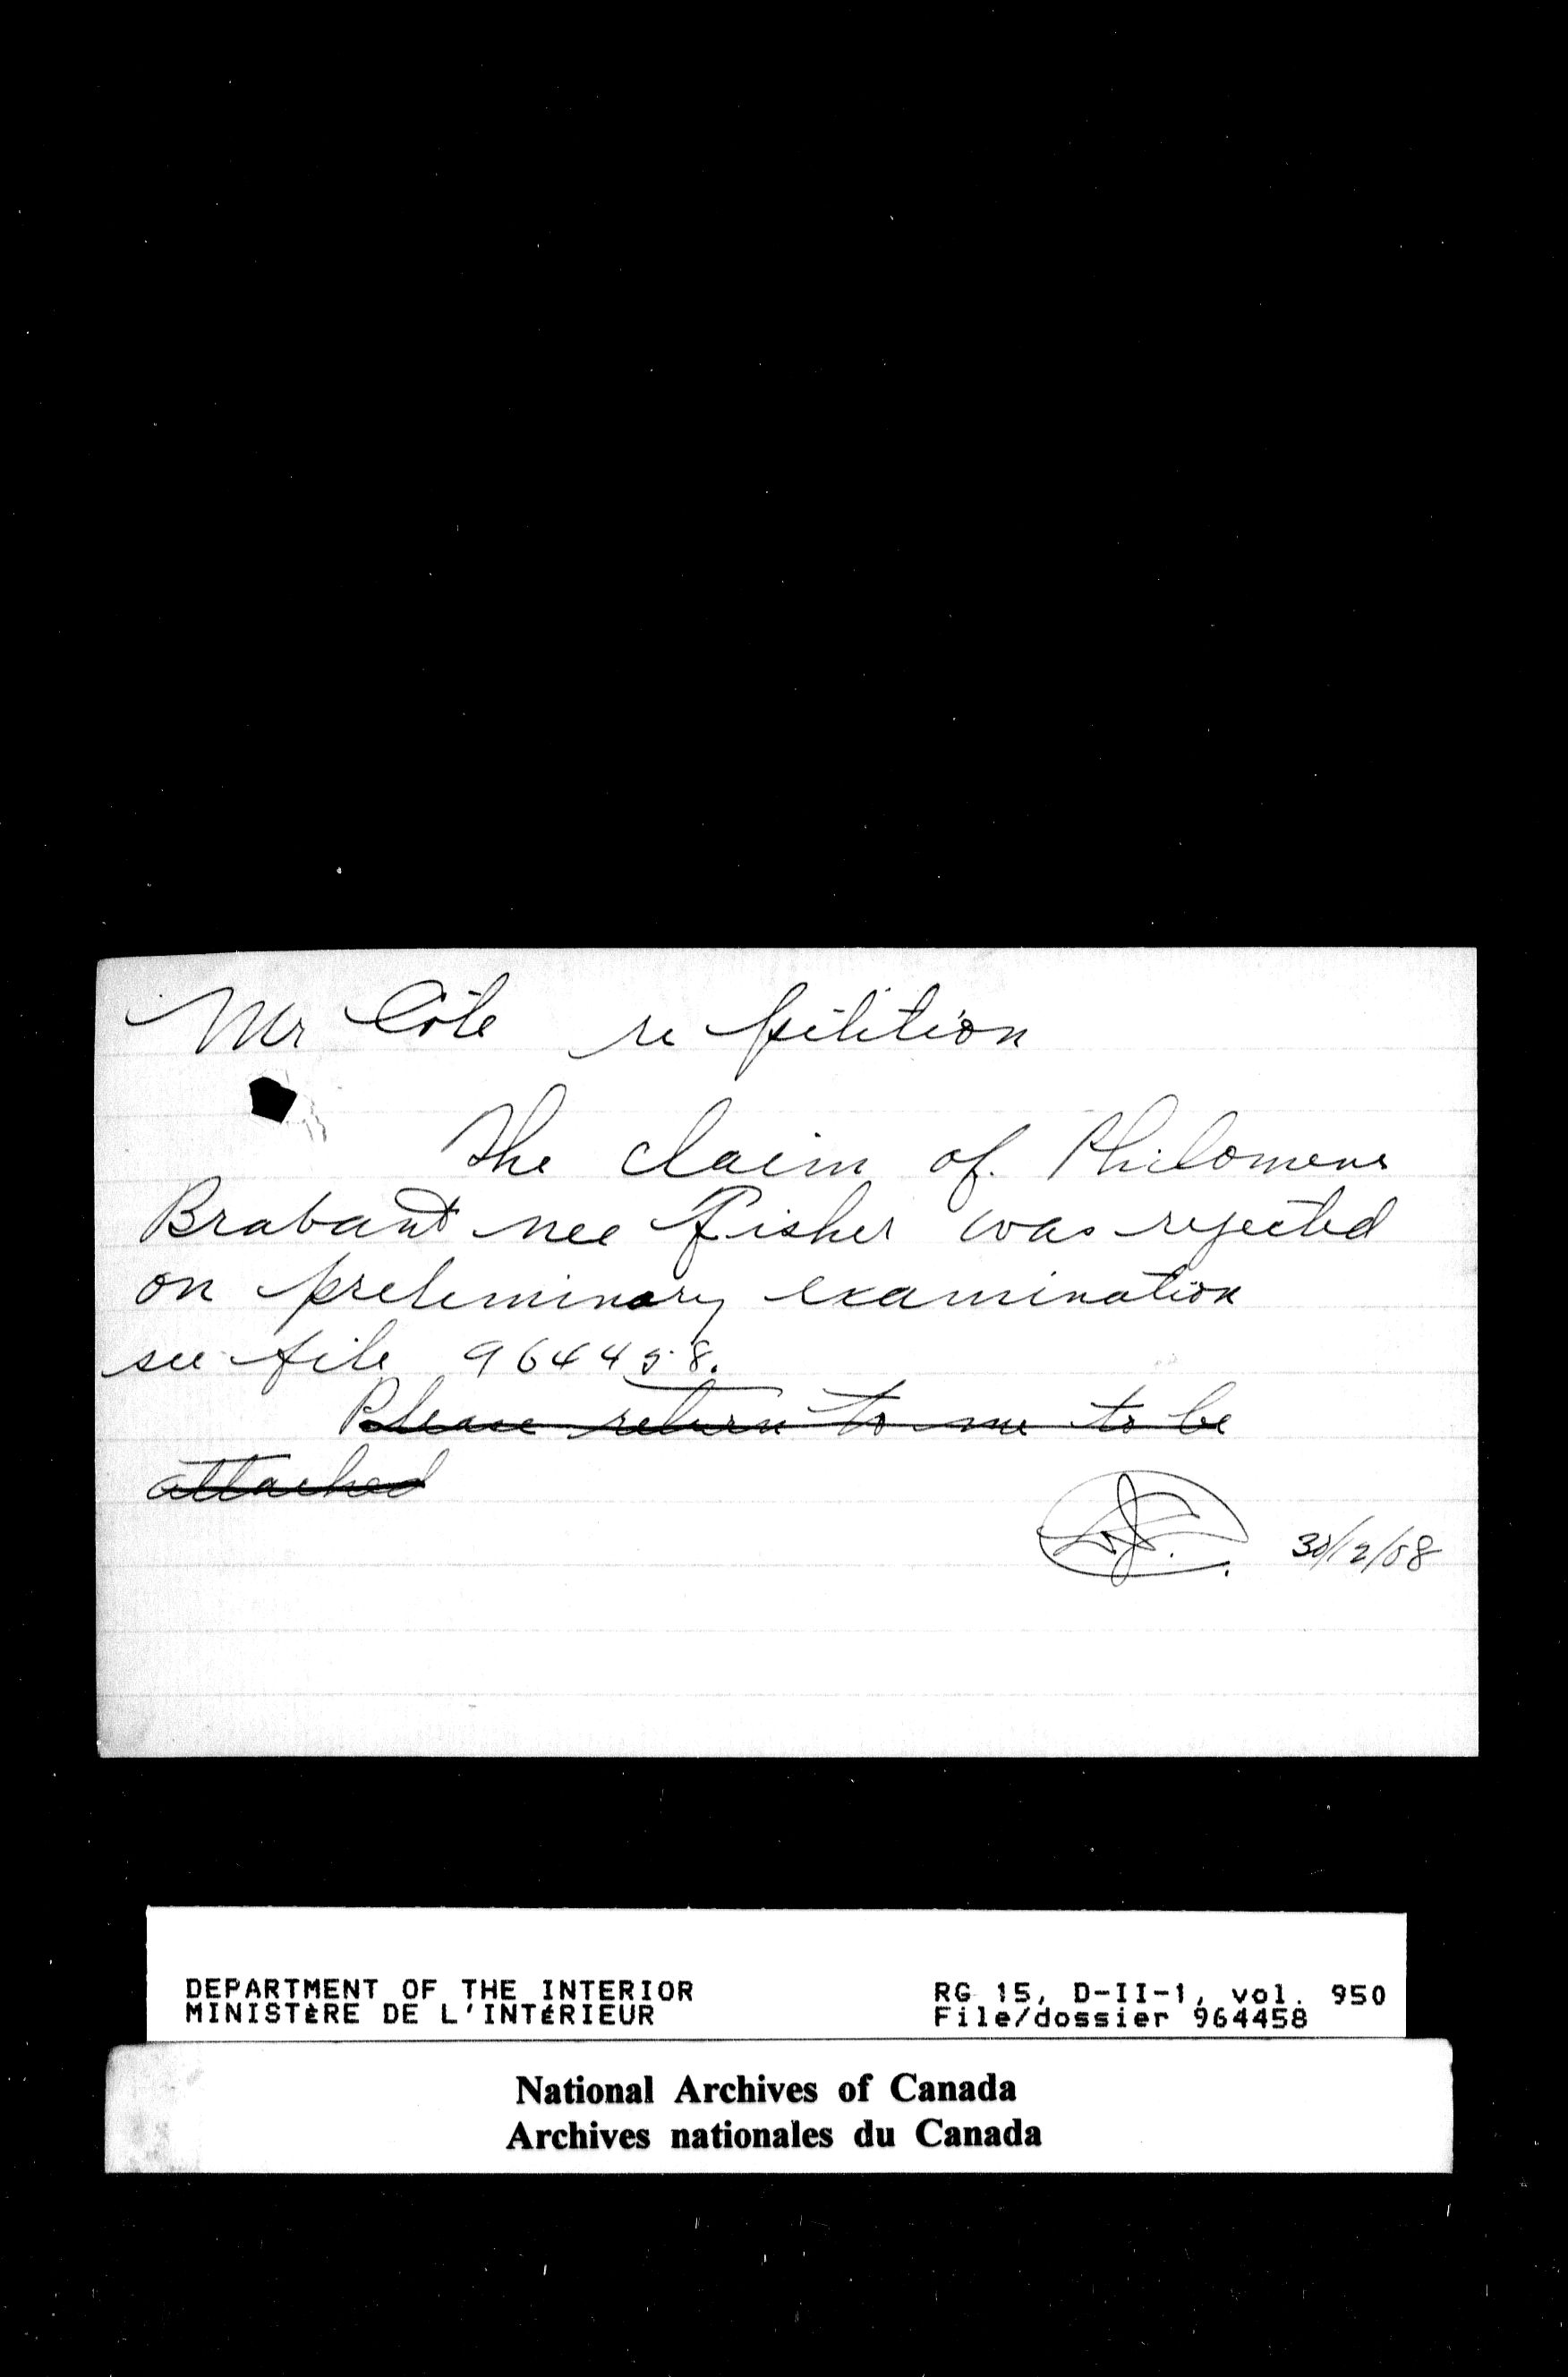 Mr Côté re petition
The claim of Philomene
Brabant nee Fisher was rejected
on preliminary examination
see file 964458.
Please return to me to be
attached
30/12/08
DEPARTMENT OF THE INTERIOR RG 15, D-II-1, vol. 950
MINISTÈRE DE L'INTÉRIEUR File/dossier 964458
National Archives of Canada
Archives nationales du Canada